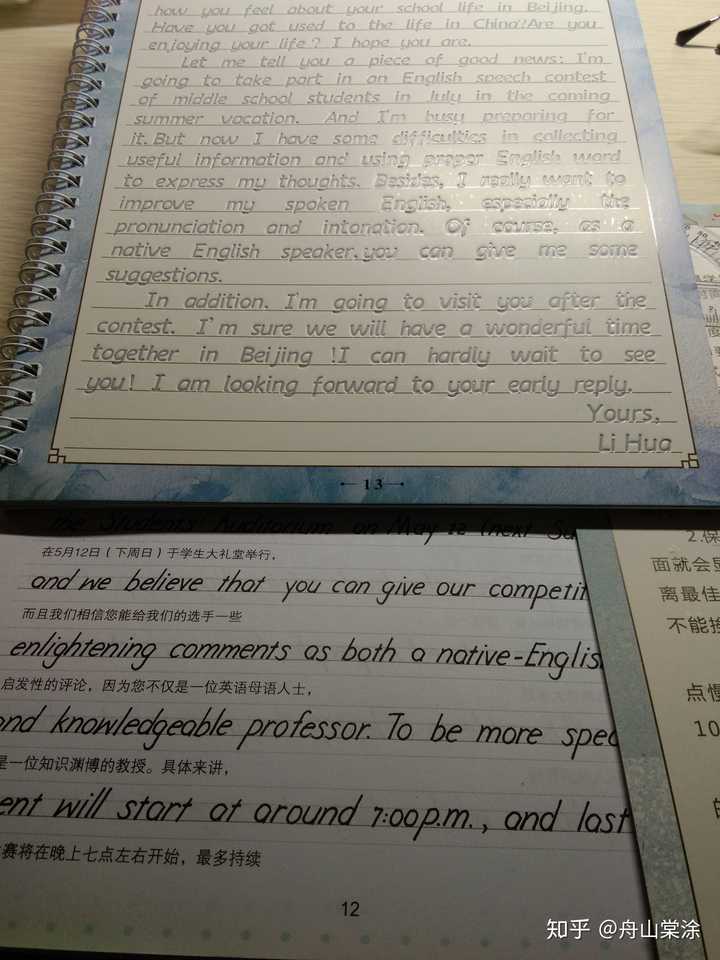 how you feel about your school life in Beijing.
Have you got used to the life in China?Are you
enjoying your life? I hope you are.
Let me tell you a piece of good news: I'm
going to take part in an English speech contest
of middle school students in July in the coming
summer vacation. And I'm busy preparing for
it.But now I have some difficulties in collecting
useful information and using proper English word
to express my thoughts. Besides, I really want to
improve my spoken English, especially the
pronunciation and intonation. Of course, as a
native English speaker,you can give me some
suggestions.
In addition. I'm going to visit you after the
contest. I'm sure we will have a wonderful time
together in Beijing !I can hardly wait to see
you! I am looking forward to your early reply.
Yours,
Li Hua
13
the Students' Auditorium on May 12 (next Su
在5月12日（下周日）于学生大礼堂举行，
and we believe that you can give our competit
而且我们相信您能给我们的选手一些
enlightening comments as both a native-Englis
启发性的评论，因为您不仅是一位英语母语人士，
and knowledgeable professor. To be more spec
是一位知识渊博的教授。具体来讲，
ent will start at around 7:00p.m., and last
赛将在晚上七点左右开始，最多持续
12
2.保
面就会
离最佳
不能
点慢
10
知乎 @舟山棠涂